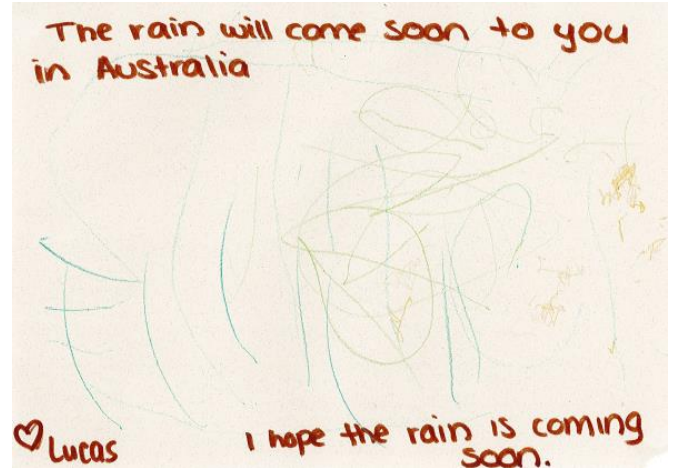 The rain will come soon to you
in Australia
♡ Lucas
I hope the rain is coming
soon.